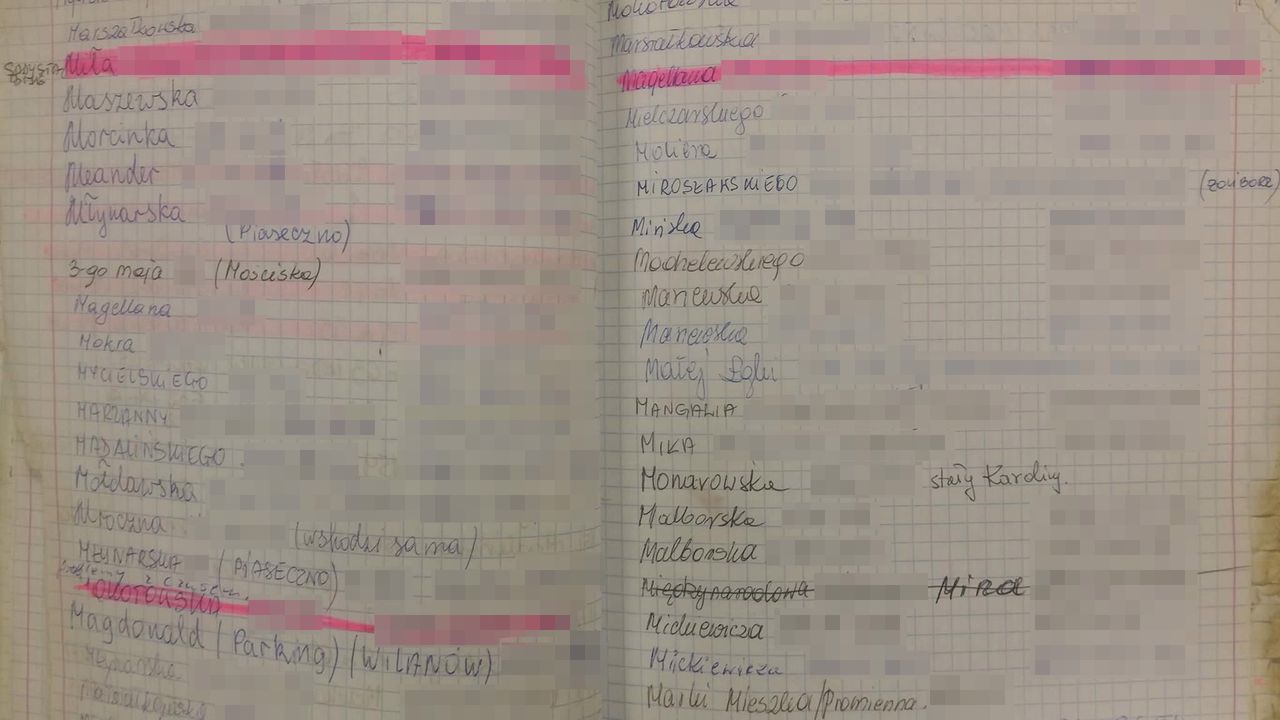 Marszałkowska
Miła
Maszewska
Morcinka
Meander
Młynarska (Piaseczno)
3-go maja (Mościska)
Magellana
Mokra
MYCIELSKIEGO
MARZANNY
MADALIŃSKIEGO
Mołdawska
Mroczna (wschodzi sama)
MŁYNARSKA (PIASECZNO)
Magdonald (Parking) (WILANÓW)
Marszałkowska
Magellana
Mielczarskiego
Moliera
MIROSŁAWSKIEGO (ŻOLIBORZ)
Mińska
Mochelewskiego
Maniewska
Małej Łąki
MANGALIA
MIKA
Monarowska stały Karoliny.
Malborska
Malborska
Międzynarodowa Mira
Mickiewicza
Mickiewicza
Marii Mieszka/Promienna.